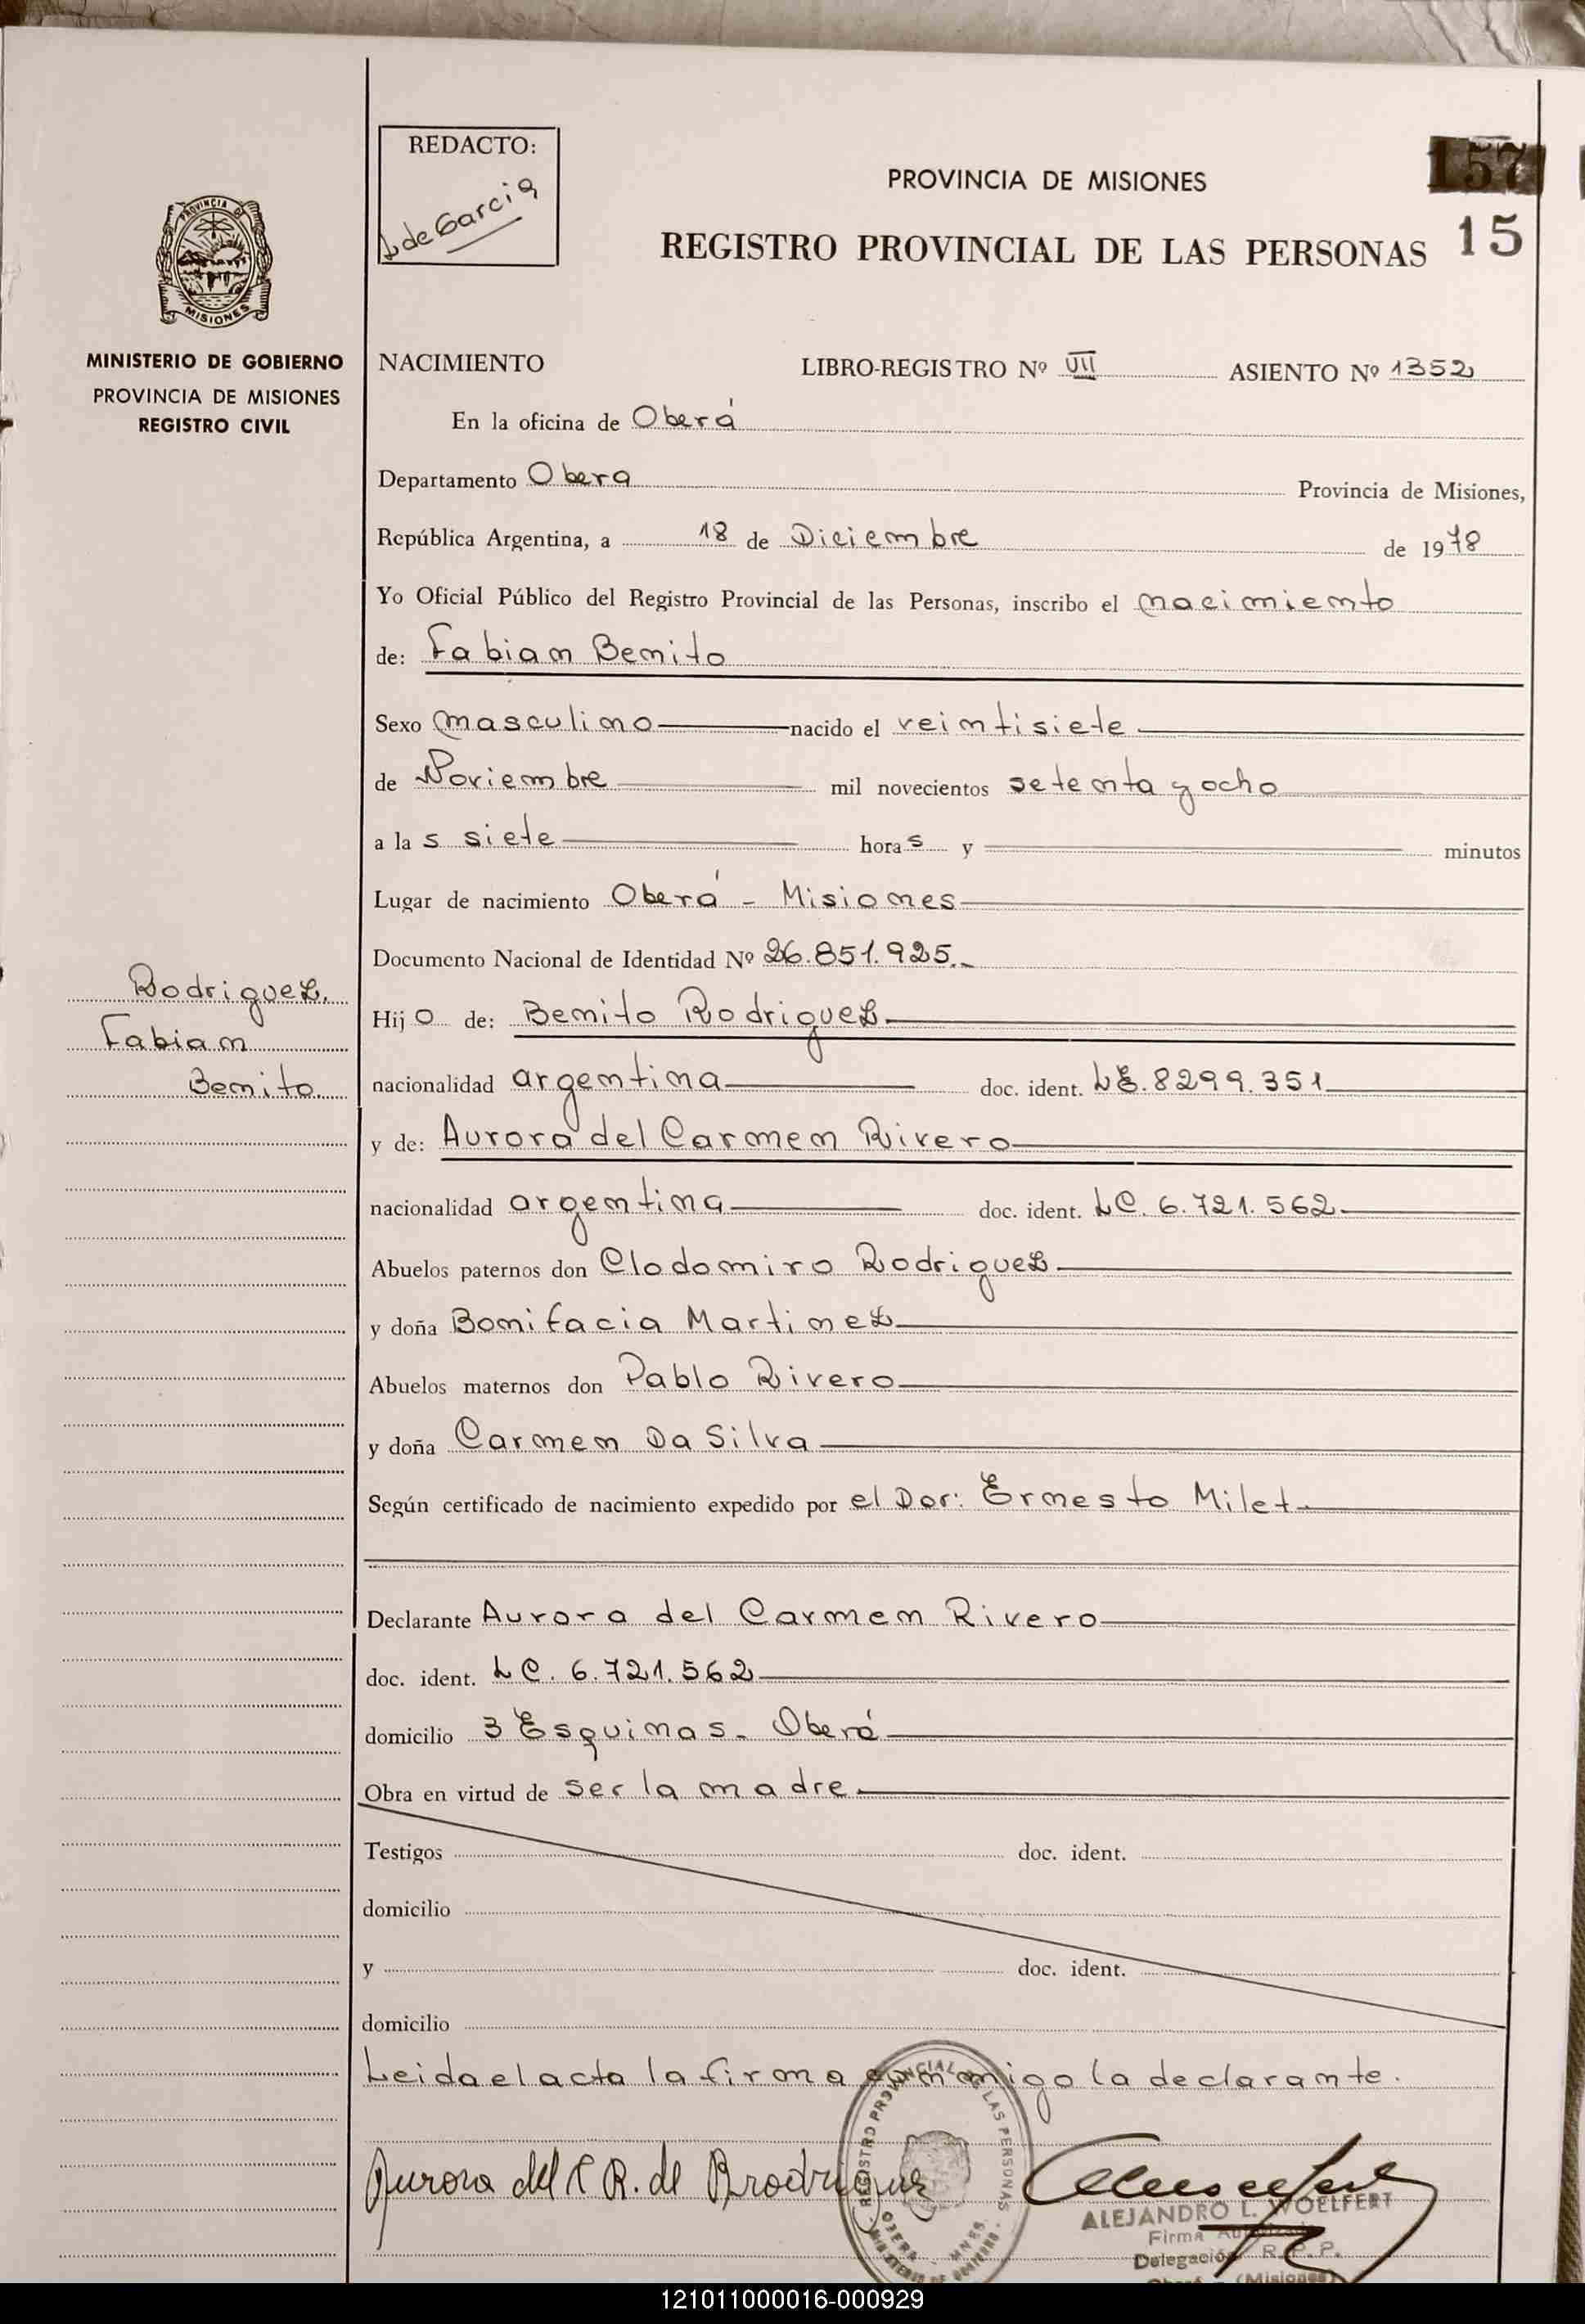 REDACTO:
L de Garcia
PROVINCIA DE MISIONES
157
REGISTRO PROVINCIAL DE LAS PERSONAS
15
PROVINCIA DE
MISIONES
MINISTERIO DE GOBIERNO
PROVINCIA DE MISIONES
REGISTRO CIVIL
NACIMIENTO LIBRO-REGISTRO Nº VII ASIENTO Nº 1352
En la oficina de Oberá
Departamento Obera Provincia de Misiones,
República Argentina, a 18 de Diciembre de 1978
Yo Oficial Público del Registro Provincial de las Personas, inscribo el nacimiento
de: Fabian Benito
Sexo masculino nacido el veintisiete
de Noviembre mil novecientos setenta y ocho
a las siete horas y minutos
Lugar de nacimiento Oberá - Misiones
Documento Nacional de Identidad Nº 26.851.925.
Rodriguez.
Fabian
Benito.
Hijo de: Benito Rodriguez
nacionalidad argentina doc. ident. LE. 8299.351
y de: Aurora del Carmen Rivero
nacionalidad argentina doc. ident. LC. 6.721.562
Abuelos paternos don Clodomiro Rodriguez
y doña Bonifacia Martinez
Abuelos maternos don Pablo Rivero
y doña Carmen Da Silva
Según certificado de nacimiento expedido por el Dor: Ernesto Milet
Declarante Aurora del Carmen Rivero
doc. ident. LC. 6.721.562
domicilio 3 Esquinas - Oberá
Obra en virtud de ser la madre
Testigos doc. ident.
domicilio
y doc. ident.
domicilio
Leida el acta la firma conmigo la declarante.
Aurora del C R. de Rrodrigue
REGISTRO PROVINCIAL DE LAS PERSONAS
OBERA - MNES.
MINISTERIO DE GOBIERNO
ALEJANDRO L. WOELFERT
Firma Autorizada
Delegación R. P. P.
Oberá - (Misiones)
121011000016-000929